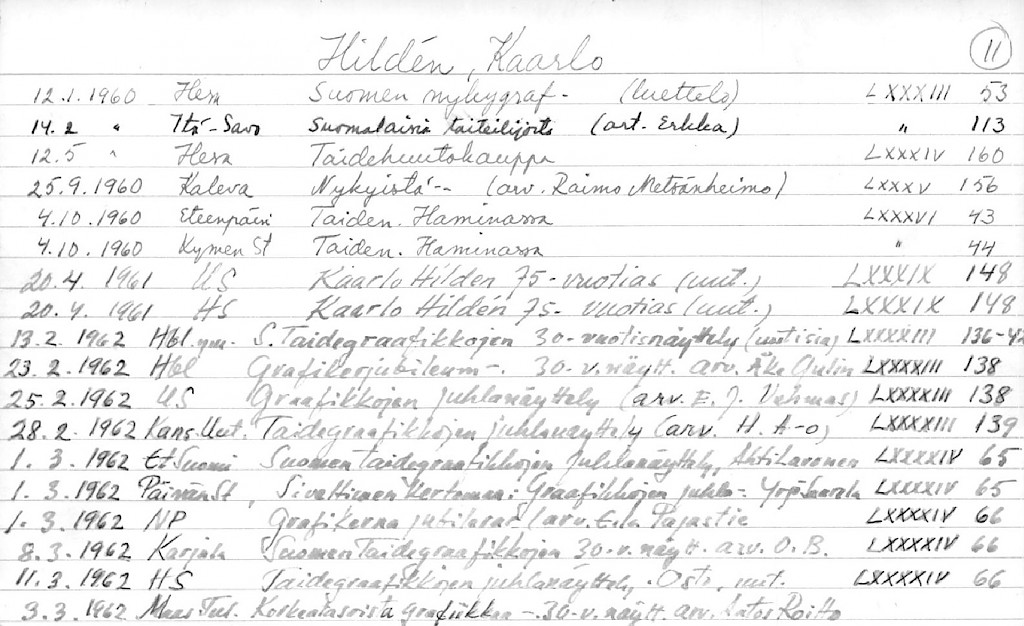 Hildén, Kaarlo 11
12.1.1960 Hesa Suomen nykygraf- (luettelo) LXXXIII 53
14.2 " Itä-Savo Suomalaisia taiteilijoita (art. Erkka) " 113
12.5 " Hesa Taidehuutokauppa LXXXIV 160
25.9.1960 Kaleva Nykyistä -- (arv. Raimo Metsänheimo) LXXXV 156
4.10.1960 Eteenpäin Taiden. Haminassa LXXXVI 43
4.10.1960 Kymen St Taiden. Haminassa " 44
20.4.1961 US Kaarlo Hildén 75-vuotias (uut.) LXXXIX 148
20.4.1961 HS Kaarlo Hildén 75-vuotias (uut.) LXXXIX 148
13.2.1962 Hbl. ym. S. Taidegraafikkojen 30-vuotisnäyttely (uutisia) LXXXXIII 136-42
23.2.1962 Hbl Grafikerjubileum-. 30-v. näytt. arv. Åke Gulin LXXXXIII 138
25.2.1962 US Graafikkojen juhlanäyttely (arv. E. J. Vehmas) LXXXXIII 138
28.2.1962 Kans. Uut. Taidegraafikkojen juhlanäyttely (arv. H. A-o) LXXXXIII 139
1.3.1962 Et Suomi Suomen Taidegraafikkojen juhlanäyttely, Ahti Lavonen LXXXXIV 65
1.3.1962 Päivän St, kertomaa: Graafikkojen juhla-. LXXXXIV 65
1.3.1962 NP Grafikerna jubilerar (arv. Eila Pajastie LXXXXIV 66
8.3.1962 Karjala Suomen Taidegraafikkojen 30-v. näytt. arv. O. B. LXXXXIV 66
11.3.1962 HS Taidegraafikkojen juhlanäyttely, uut. LXXXXIV 66
3.3.1962 Maas Tul. Korkeatasoista grafiikkaa -. 30-v. näytt. arv. Roitto